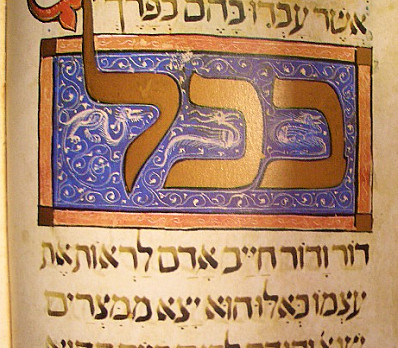 אשר עבדו בהם בפרך
בכל
דור ודור חייב אדם לראות את
עצמו כאלו הוא יצא ממצרים